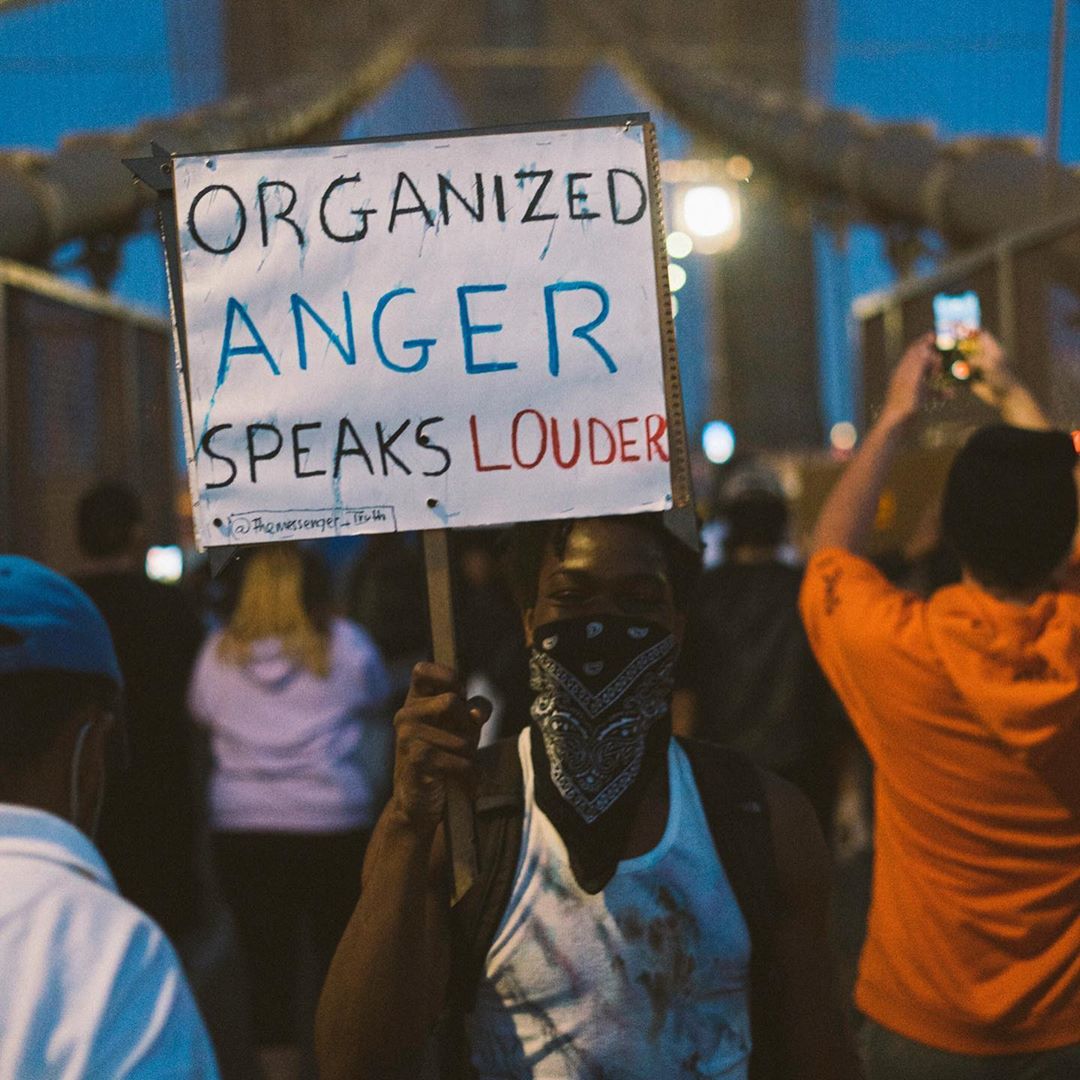 ORGANIZED
ANGER
SPEAKS LOUDER
@Themessenger_Truth